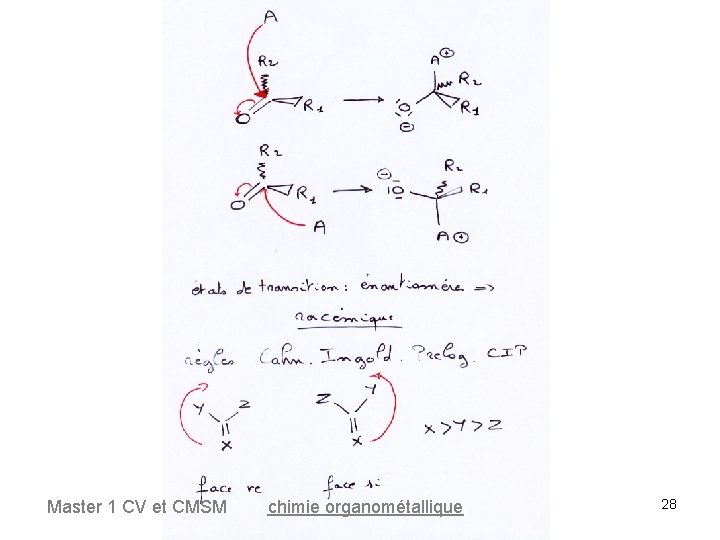 A
R2
R1
O
A⊕
R2
R1
O
⊖
R2
R1
O
A
⊖
IOI
R2
R1
A⊕
états de transition : énantiomère =>
racémique
règles Cahn. Ingold. Prelog. CIP
Y Z
X
Z Y
X
X>Y>Z
face re
face si
Master 1 CV et CMSM
chimie organométallique
28